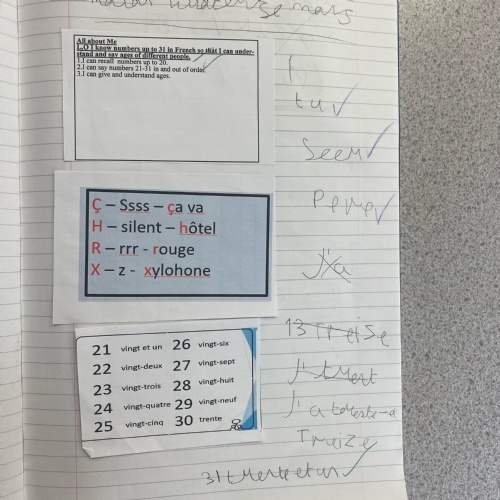 All about Me
L.O I know numbers up to 31 in French so that I can under-
stand and say ages of different people.
1.I can recall numbers up to 20.
2.I can say numbers 21-31 in and out of order.
3.I can give and understand ages.
tu
Seeur
Pere
J'a
Ç – Ssss – ça va
H – silent – hôtel
R – rrr - rouge
X – z - xylohone
13 Treise
21 vingt et un 26 vingt-six
22 vingt-deux 27 vingt-sept
23 vingt-trois 28 vingt-huit
24 vingt-quatre 29 vingt-neuf
25 vingt-cinq 30 trente
Treize